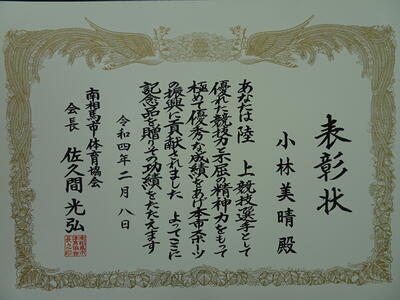 表彰状
小林美晴殿
あなたは陸上競技選手として
優れた競技力と不屈の精神力をもって
極めて優秀な成績をあげ本市スポーツ
の振興に貢献されました よってここに
記念品を贈りその功績をたたえます
令和四年二月八日
南相馬市体育協会
会長 佐久間光弘